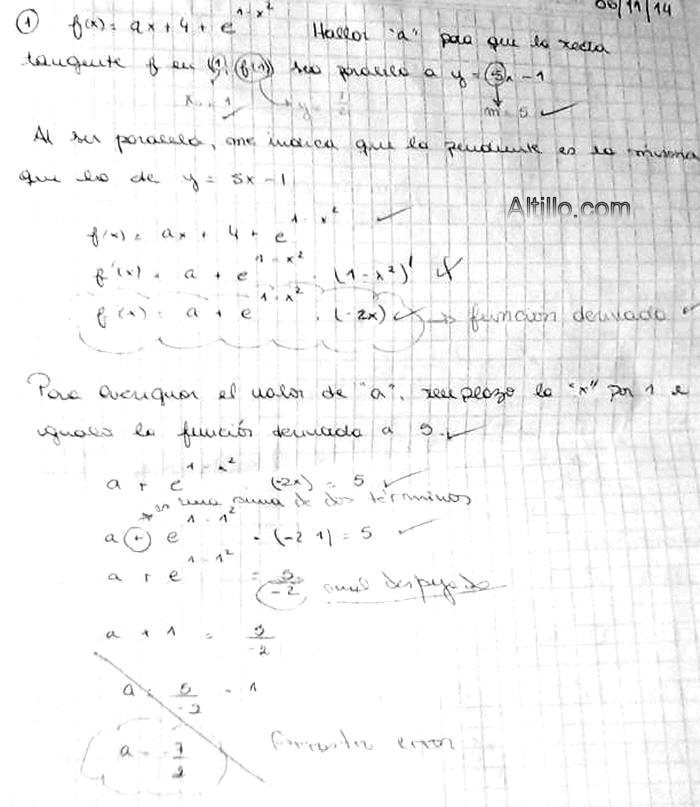 06/11/14
① f(x) = ax + 4 + e^(1-x²) Hallar "a" para que la recta
tangente f en (1; f(1)) sea paralela a y = 5x - 1
x₀ = 1 y = m = 5 ✓
Al ser paralela, me indica que la pendiente es la misma
que la de y = 5x - 1
Altillo.com
f(x) = ax + 4 + e^(1-x²) ✓
f'(x) = a + e^(1-x²) · (1-x²)'
f'(x) = a + e^(1-x²) · (-2x) ✓ → función derivada ✓
Para averiguar el valor de "a", reemplazo la "x" por 1 e
igualo la función derivada a 5. ✓
a + e^(1-x²) · (-2x) = 5 ✓
es una suma de dos términos
a + e^(1-1²) · (-2 1) = 5 ✓
a + e^(1-1²) = 5/-2 mal despejado
a + 1 = 5/-2
a = 5/-2 - 1
a = -7/2 error